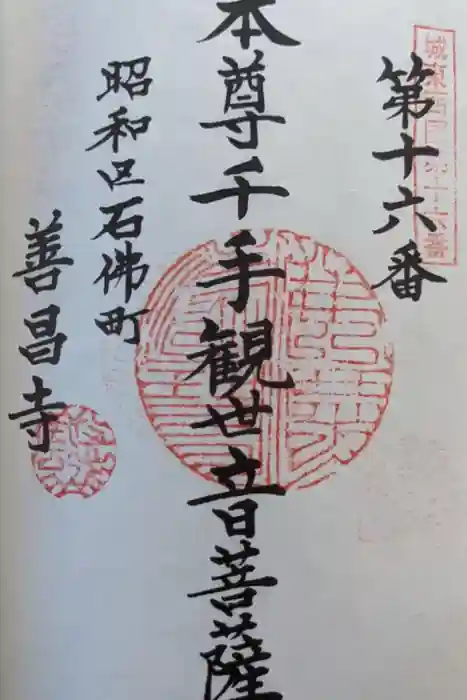 城東西国第十六番
第十六番
本尊千手観世音菩薩
昭和区石佛町
善昌寺